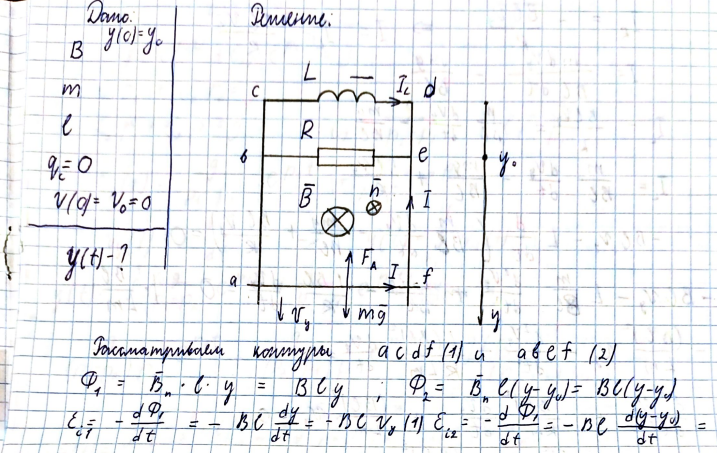 Дано:
y(0)=y₀
B
m
l
q_c=0
V(0)=V₀=0
y(t)-?
Решение:
L
c
I_L
d
R
b
e
y₀
B̄
n̄
I
F_A
a
I
f
V_y
mḡ
y
Рассматриваем контуры acdf (1) и abef (2)
Φ₁ = B̄ₙ · l · y = Bly ; Φ₂ = B̄ₙ l(y-y₀) = Bl(y-y₀)
ℰ_i1 = - dΦ₁/dt = - Bl dy/dt = - Bl V_y (1) ℰ_i2 = - dΦ₁/dt = - Bl d(y-y₀)/dt =